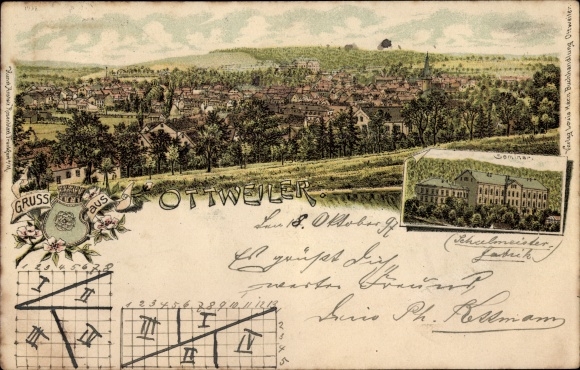 Verlag Louis Hach, Buchhandlung, Ottweiler
Seminar.
GRUSS AUS
OTTWEILER
Den 8. Oktober 97
(Schulmeister-
fabrik)
Es grüßt Dich
werter Freund
Dein Ph. Kessmann
1 2 3 4 5 6 7 8 9
I
II
III
IV
1 2 3 4 5 6 7 8 9 10 11 12 13
2
3
4
5
III
I
II
IV